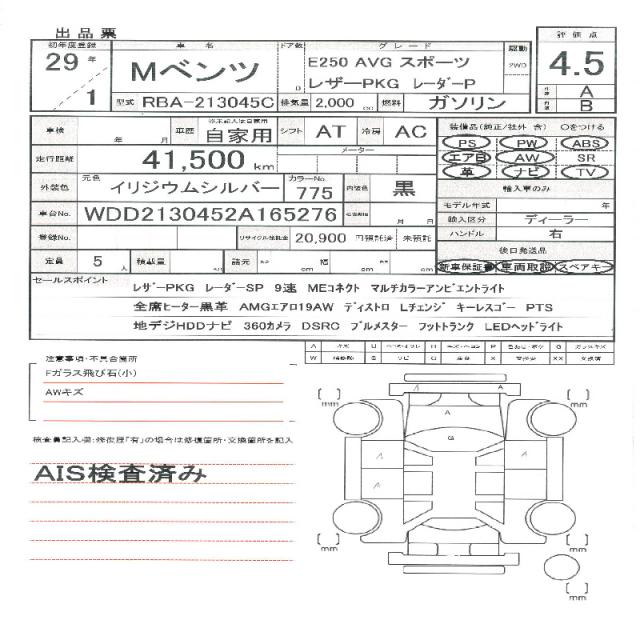 出品票
初年度登録 車名 ドア数 グレード 駆動 評価点
29年 Mベンツ E250 AVG スポーツ 2WD 4.5
1 D レザーPKG レーダーP
型式 RBA-213045C 排気量 2,000 cc 燃料 ガソリン A
B
車検 年 月 車歴 自家用 シフト AT 冷房 AC 装備品(純正/社外 含) 〇をつける
走行距離 41,500 km メーター PS PW ABS
エアB AW SR
革 ナビ TV
外装色 元色 イリジウムシルバー カラーNo. 775 内装色 黒 輸入車のみ
モデル年式 年
車台No. WDD2130452A165276 月 日 輸入区分 ディーラー
登録No. リサイクル預託金 20,900 円預託済 未預託 ハンドル 右
定員 5人 積載量 諸元 長 cm 幅 cm 高 cm 後日発送品
新車保証書 車両取説 スペアキー
セールスポイント
レザーPKG レーダーSP 9速 MEコネクト マルチカラーアンビエントライト
全席ヒーター黒革 AMGエアロ19AW ディストロ Lチェンジ キーレスゴー PTS
地デジHDDナビ 360カメラ DSRC ブルメスター フットトランク LEDヘッドライト
注意事項・不具合箇所
Fガラス飛び石(小)
AWキズ
検査員記入欄:修復歴「有」の場合は修復箇所・交換箇所を記入
AIS検査済み
A
A A
G
A A
A
[ ] mm [ ] mm
[ ] mm [ ] mm
[ ] mm